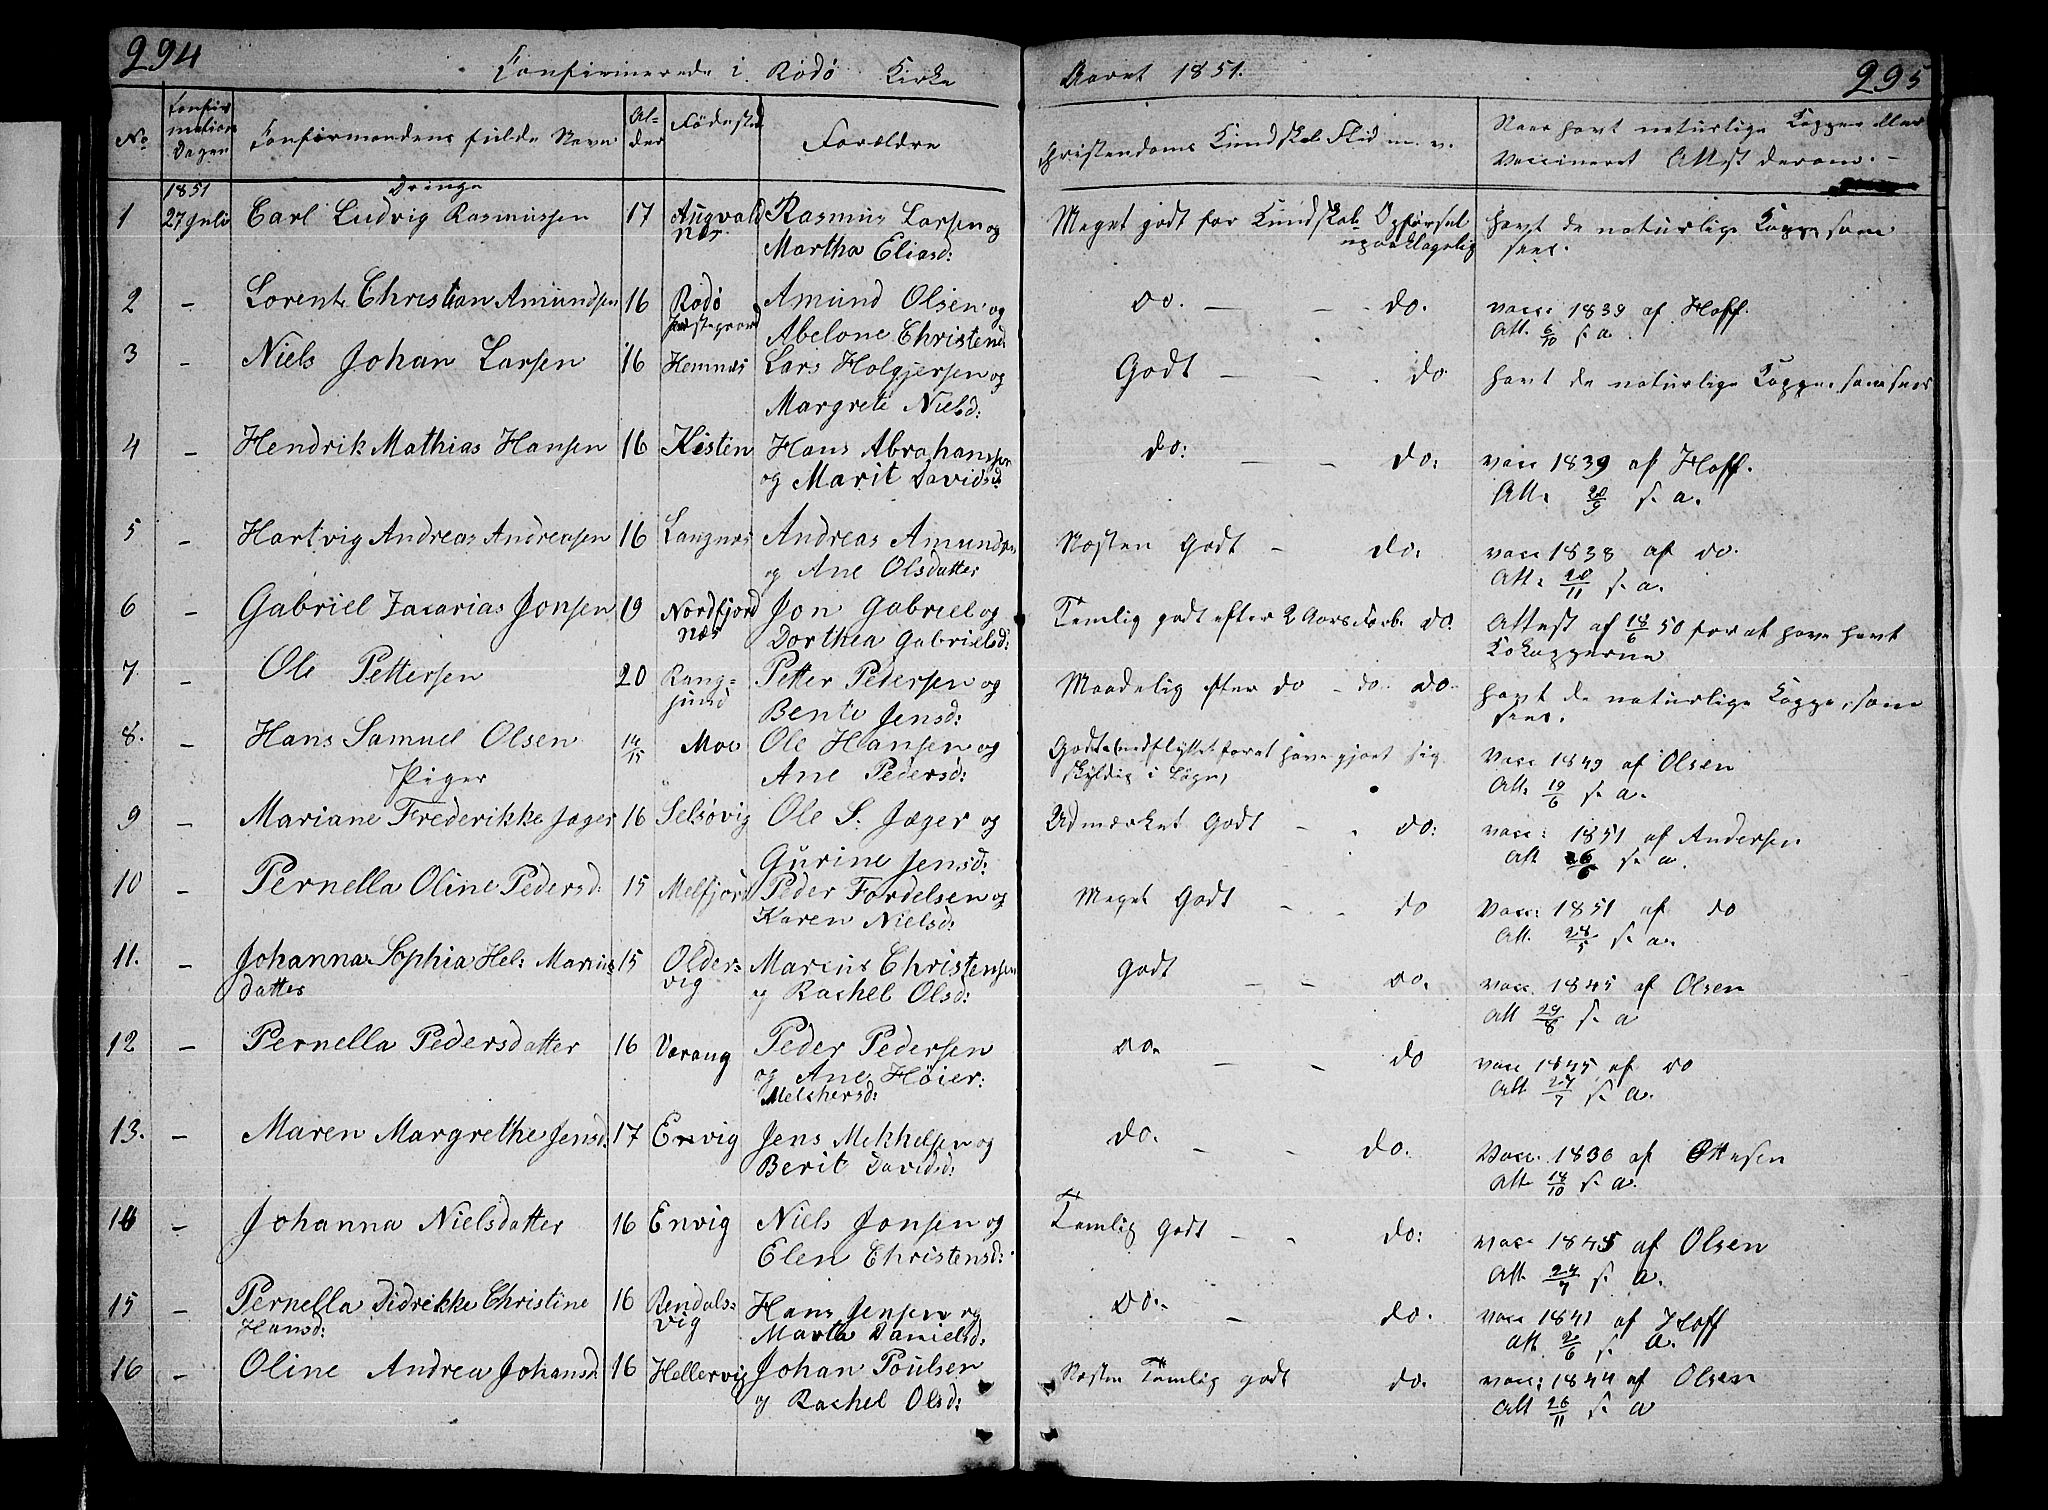 294
Confirmerede i Rødø Kirke
Aaret 1851.
295
No
Confirmations Dagen
Confirmandens fulde Navn
Alder
Fødested
Forældre
Christendoms Kundskab Flid m. v.
Naar havt naturlige Kopper eller
Vaccineret Attest derom. -
1851
Drenge
1 27 Juli Carl Ludvig Rasmussen 17 Augvald Rasmus Larsen og Meget godt for Kundskab Opførsel havt de naturlige Kopper som
næs Martha Eliasd: upaaklagelig sees.
2 - Lorents Christian Amundsen 16 Rødø Amund Olsen og Do. - - do. vacc: 1839 af Hoff.
Præstegaard Abelone Christend: Att. 6/10 s. a.
3 - Niels Johan Larsen 16 Hemnæs Lars Holgjersen og Godt - - do havt de naturlige Kopper som sees
Margrete Nielsd:
4 - Hendrik Mathias Hansen 16 Kisten Hans Abrahamsen do: - - do: vacc 1839 af Hoff.
og Marit Davidsd: Att. 20/9 s. a.
5 - Hartvig Andreas Andreasen 16 Langnæs Andreas Amundsen Næsten Godt - do: vacc 1838 af do.
og Ane Olsdatter Att: 20/11 s. a.
6 - Gabriel Zacarias Jonsen 19 Nordfjord Jon Gabriel og Temlig godt efter 2 Aars Forb. do. Attest af 18/6 50 for at have havt
næs Dorthea Gabrielsd: Kokopperne
7. - Ole Pettersen 20 Rang= Petter Pedersen og Maadelig efter do - do. do. havt de naturlige Kopper, som
sund Bente Jensd: sees.
8. - Hans Samuel Olsen 14/15 Moe Ole Hansen og Godt (nedflyttet for at have gjort sig Vacc 1849 af Olsen
Ane Pedersd: skyldig i Løgn) Att: 19/6 s. a.
Piger
9 - Mariane Frederikke Jæger 16 Selsøvig Ole S. Jæger og Udmærket Godt - - do: vacc: 1851 af Andersen
Gurine Jensd: Att 26/6 s. a.
10 - Pernella Oline Pedersd: 15 Melfjord Peder Fordelsen og Meget Godt - - do Vacc: 1851 af do
Karen Nielsd: Att. 28/5 s. a.
11. - Johanna Sophia Hel: Marcus 15 Olders= Marcus Christensen Godt - - do. vacc. 1845 af Olsen
datter vig og Rachel Olsd: Att 29/8 s. a
12 - Pernella Pedersdatter 16 Værang Peder Pedersen do. - - do vacc 1845 af do
og Ane Høier: Att 27/7 s. a.
Melchersd:
13. - Maren Margrethe Jensd: 17 Envig Jens Mikkelsen og do. - - do. Vacc. 1836 af Ottesen
Berit Davidsd: Att. 18/10 s. a.
14 - Johanna Nielsdatter 16 Envig Niels Jonsen og Temlig Godt - - do: vacc 1845 af Olsen
Elen Christensd: Att. 24/7 s. a.
15 - Pernella Didrikke Christine 16 Rendals= Hans Jensen og Do. - do. vacc 1841 af Hoff
Hansd: vig Marta Danielsd: Att 2/6 s. a.
16 - Oline Andrea Johansd: 16 Hellervig Johan Poulsen Næsten Temlig godt do. vacc: 1844 af Olsen
og Rachel Olsd: Att 26/11 s. a